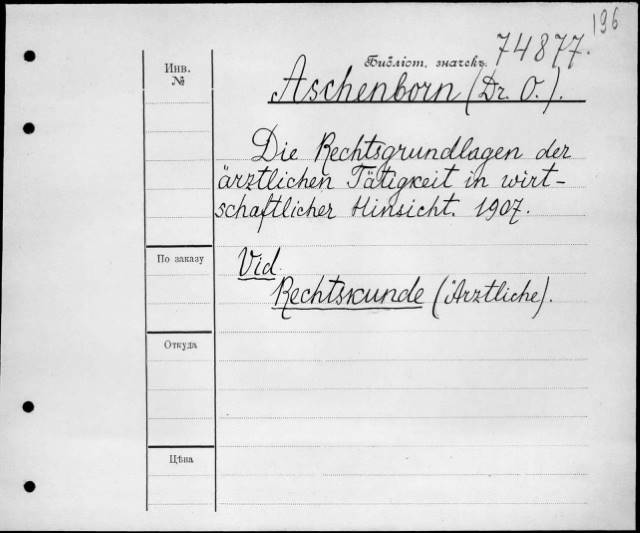 196
Библіот. значекъ. 74877.
Инв.
№
Aschenborn (Dr. O.).
Die Rechtsgrundlagen der
ärztlichen Tätigkeit in wirt-
schaftlicher Hinsicht. 1907.
По заказу
Vid.
Rechtskunde (Ärztliche).
Откуда
Цѣна